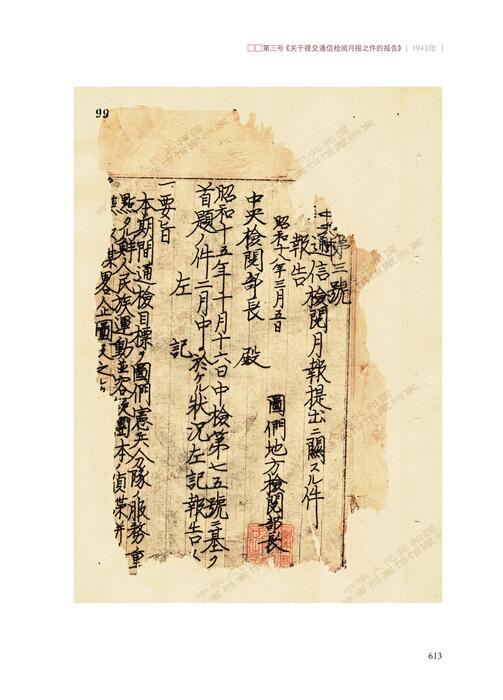 □□第三号《关于提交通信检阅月报之件的报告》 | 1943年 |
99
第三號
通信檢閱月報提出ニ關スル件
報告
昭和十八年三月五日
圖們地方檢閱部長
中央檢閱部長 殿
昭和十五年十月十六日中檢第七五號ニ基ク
首題ノ件二月中ニ於ケル狀況左記報告ス
左 記
一、要旨
本期間通檢目標ヲ圖們憲兵分隊ノ服務重
點タル鮮人民族運動並容疑團本ノ偵葉并
613